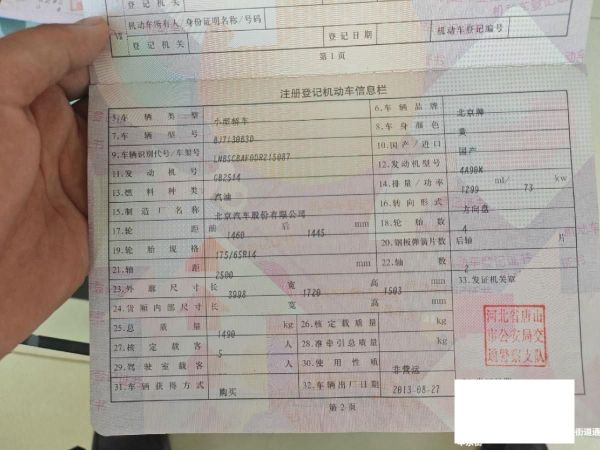 机动车所有人/身份证明名称/号码
Ⅶ
登记机关 登记日期 机动车登记编号
第1页
注册登记机动车信息栏
5.车辆类型 小型轿车 6.车辆品牌 北京牌
7.车辆型号 BJ7130B3D 8.车身颜色 黄
9.车辆识别代号/车架号 LNBSCBAF0DR215087 10.国产/进口 国产
11.发动机号 GB2514 12.发动机型号 4A90M
13.燃料种类 汽油 14.排量/功率 1299 ml/ 73 kw
15.制造厂名称 北京汽车股份有限公司 16.转向形式 方向盘
17.轮距 前 1460 后 1445 mm 18.轮胎数 4
19.轮胎规格 175/65R14 20.钢板弹簧片数 后轴 片
21.轴距 2500 mm 22.轴数 2
23.外廓尺寸 长 3998 宽 1720 高 1503 mm 33.发证机关章
24.货厢内部尺寸 长 宽 高 mm
25.总质量 1490 kg 26.核定载质量 kg
27.核定载客 5 人 28.准牵引总质量 kg
29.驾驶室载客 人 30.使用性质 非营运
31.车辆获得方式 购买 32.车辆出厂日期 2013-08-27
河北省唐山
市公安局交
通警察支队
第2页
街道通